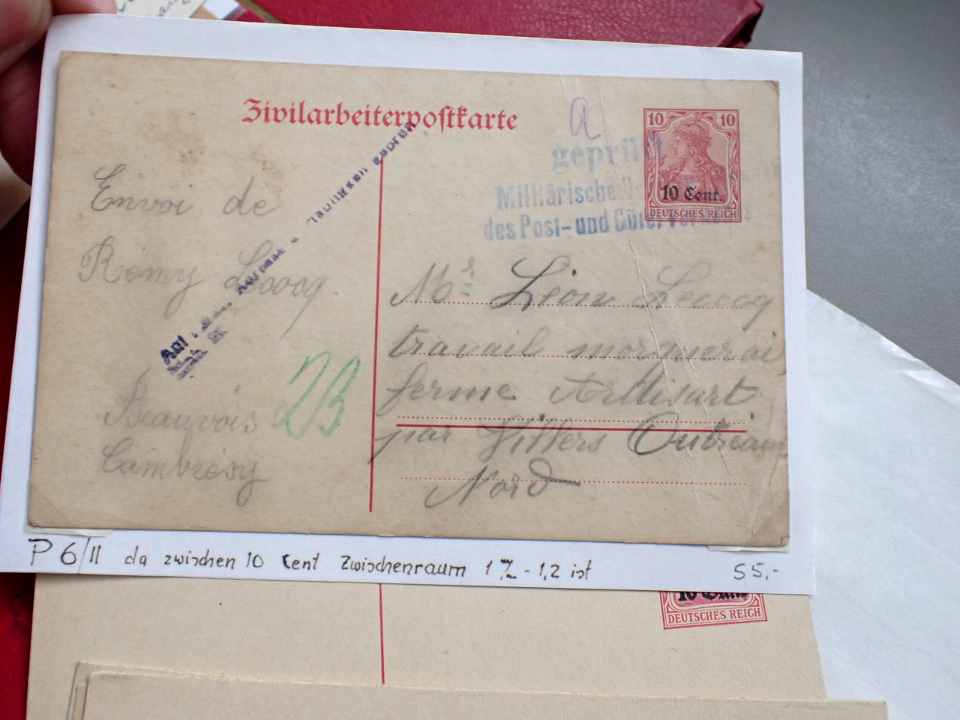 Zivilarbeiterpostkarte
a
geprüft
Militärische
des Post- und Güter
10 10
10 Cent.
DEUTSCHES REICH
Envoi de
Remy Lecocq
Beauvois
Cambresy
23
Mr Léon Lecocq
travail
ferme
par Villers Outréaux
Nord
P 6/II da zwischen 10 Cent Zwischenraum 1 1/2 - 1,2 ist 55,-
10 Cent
DEUTSCHES REICH